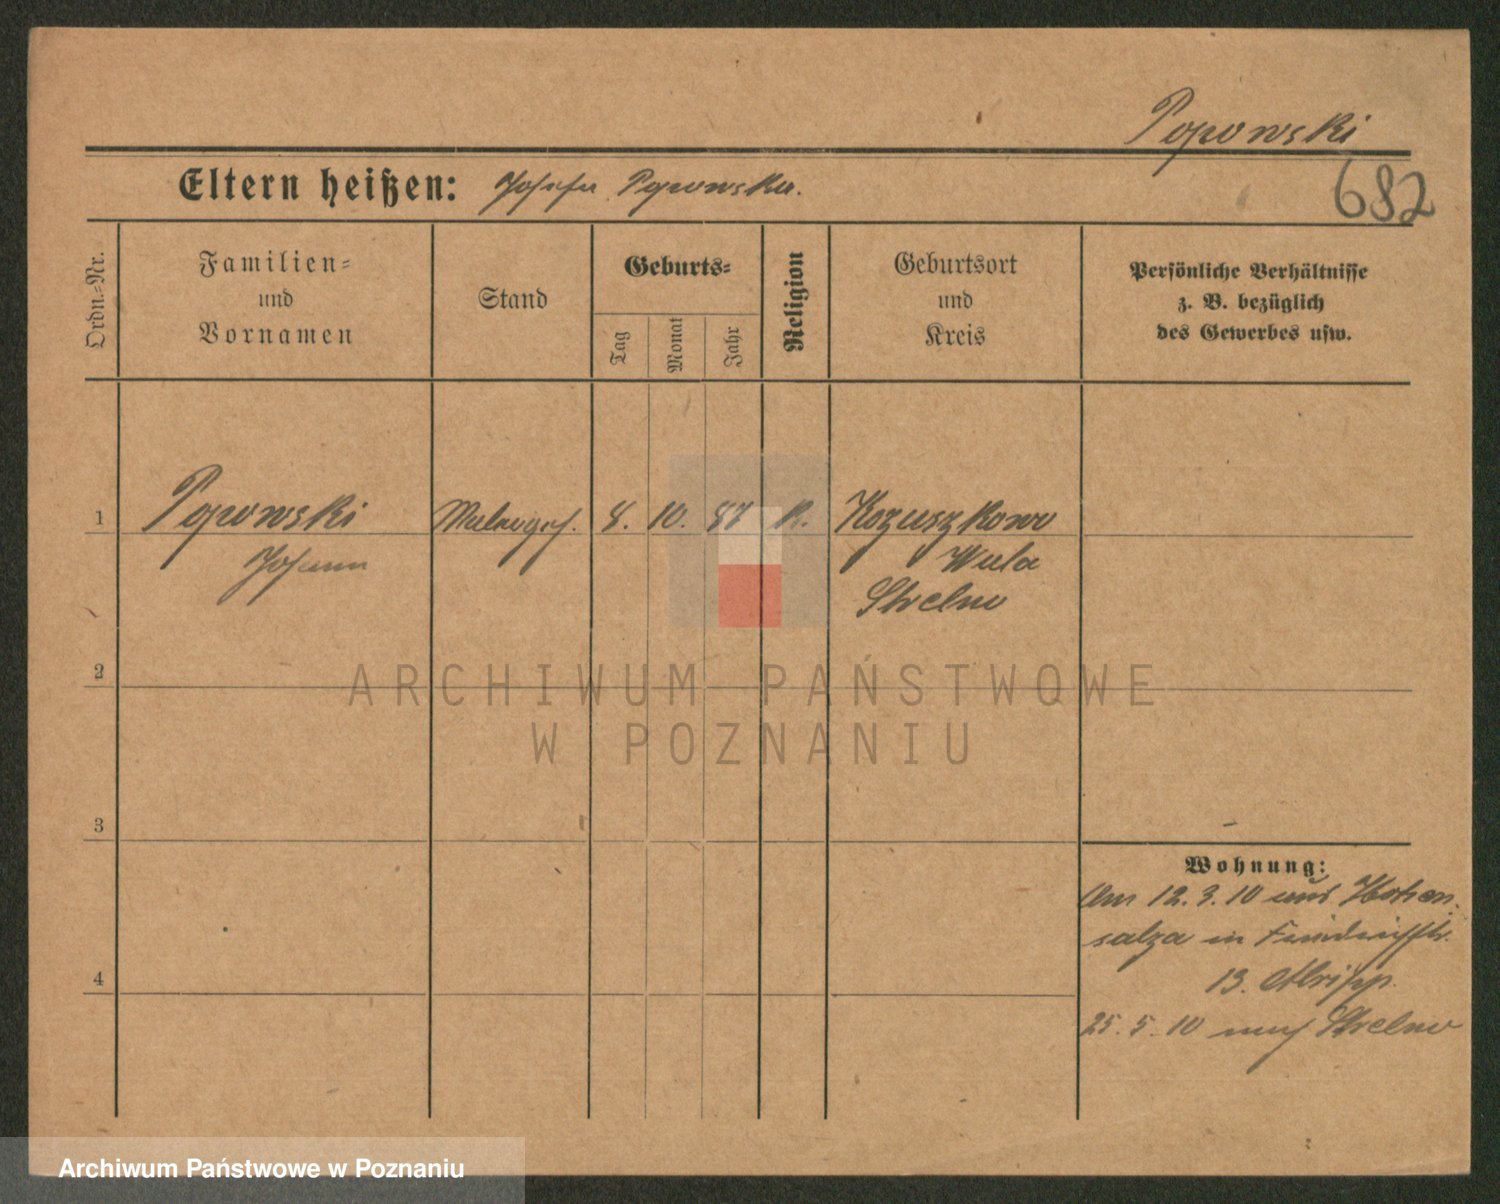 Popowski
682
Eltern heißen: Josefa Popowska.
Ordn.-Nr.
Familien-
und
Vornamen
Stand
Geburts-
Tag
Monat
Jahr
Religion
Geburtsort
und
Kreis
Persönliche Verhältnisse
z. B. bezüglich
des Gewerbes usw.
1 Popowski 8. 10. 87 K. Kozuszkowo
Johann Wola
Strelno
2
ARCHIWUM PAŃSTWOWE
W POZNANIU
3
Wohnung:
Am 12.3.10 aus Hohen-
salza in Friedrichstr.
13.
4
25.5.10 nach Strelno
Archiwum Państwowe w Poznaniu